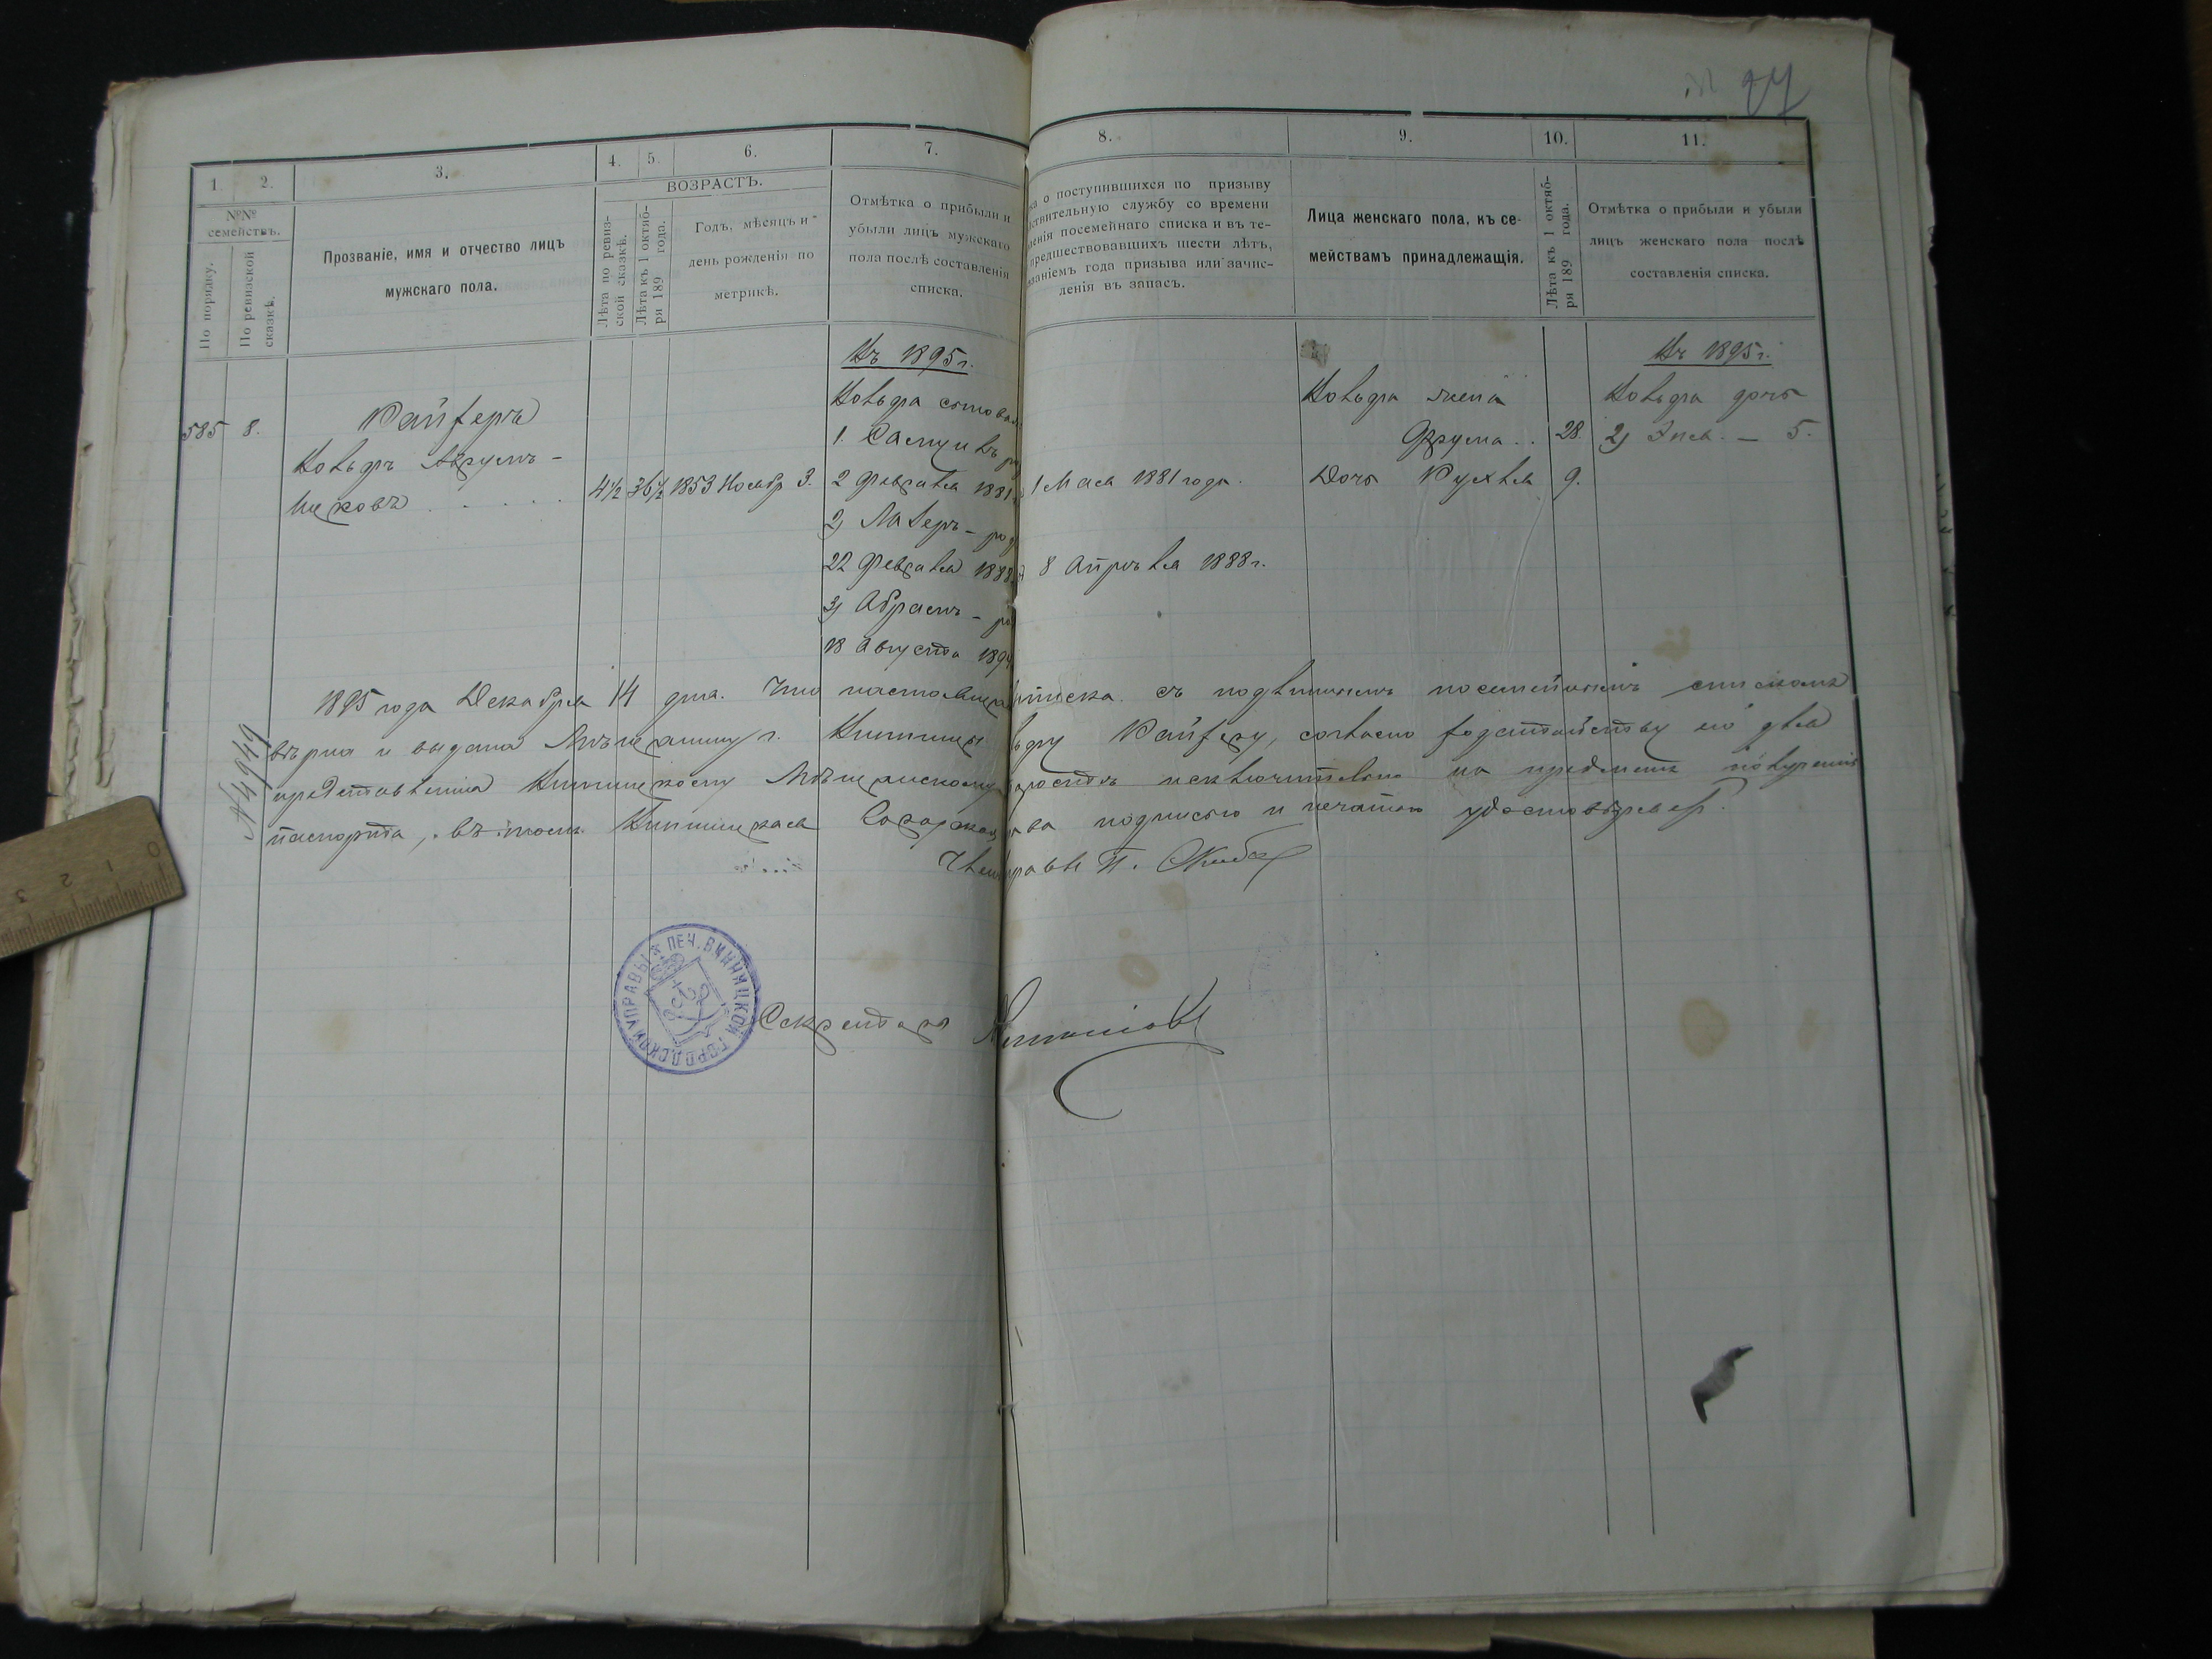 27
1.
2.
3.
4.
5.
6.
7.
8.
9.
10.
11.
№№ семействъ.
По порядку.
По ревизской сказкѣ.
Прозваніе, имя и отчество лицъ
мужскаго пола.
ВОЗРАСТЪ.
Лѣта по ревиз-
ской сказкѣ.
Лѣта къ 1 октяб-
ря 189 года.
Годъ, мѣсяцъ и
день рожденія по
метрикѣ.
Отмѣтка о прибыли и
убыли лицъ мужскаго
пола послѣ составленія
списка.
ка о поступившихся по призыву
ствительную службу со времени
ленія посемейнаго списка и въ те-
предшествовавшихъ шести лѣтъ,
званіемъ года призыва или зачис-
ленія въ запасъ.
Лица женскаго пола, къ се-
мействамъ принадлежащія.
Лѣта къ 1 октяб-
ря 189 года.
Отмѣтка о прибыли и убыли
лицъ женскаго пола послѣ
составленія списка.
585
8.
Райферъ
Ковьдръ
4½
36½
1853 Ноябр 3.
Къ 1895 г.
Ковьдра сыновья
1. Самуилъ
2 Февраля 1881
1 Мая 1881 года.
2)
22 Февраля 1888
8 Апрѣля 1888 г.
3) Абрамъ
18 Августа 189
Ковьдра жена
Фрума
28.
Дочь Рухля
9.
Къ 1895 г.
Ковьдра дочь
2) 5.
№ 4949
1895 года Декабря 14 дня. Что настоящая выписка съ подлиннымъ посемейнымъ спискомъ
вѣрна и выдана Мѣщанину г. Винницы Райферу, согласно ходатайству его для
представленія Мѣщанскому старостѣ исключительно на предметъ полученія
паспорта, въ томъ Винницкая Городская подписью и печатью удостовѣряетъ.
Членъ Управы П.
Секретарь
ПЕЧ. ВИННИЦКОЙ ГОРОДСКОЙ УПРАВЫ
0 1 2 3